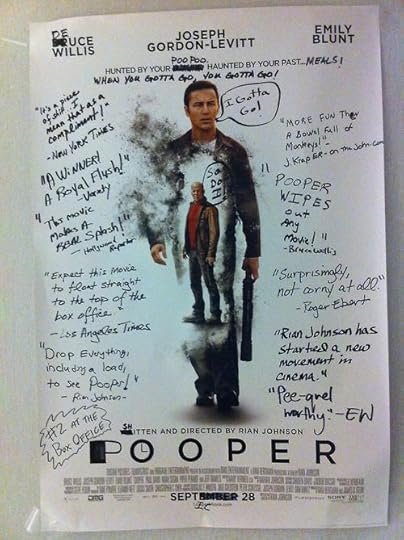 DEUCE
WILLIS
JOSEPH
GORDON-LEVITT
EMILY
BLUNT
POO POO.
HUNTED BY YOUR HAUNTED BY YOUR PAST... MEALS!
WHEN YOU GOTTA GO, YOU GOTTA GO!
I Gotta
Go!
So
Do
I!
"It's a piece
of shit. I
mean that as a
compliment!"
-NEW YORK TIMES
"A WINNER!
A Royal Flush!"
-Variety
"This movie
Makes A
REAL Splash!"
- Hollywood Reporter
"Expect this movie
to float straight
to the top of the
box office."
- Los Angeles Times
"Drop Everything,
including a load,
to see Pooper!"
- Rian Johnson-
#2 AT THE
Box OFFICE!
"MORE FUN THEN
A Bowl Full of
Monkeys!"
J. KrapER - on-the-John.com
"POOPER
WIPES
out
Any
Movie!"
-Bruce Willis
"Surprisingly,
not corny at all."
- Roger Ebert
"Rian Johnson has
started a new
movement in
cinema."
"Pee-quel
worthy." - EW
SHITTEN AND DIRECTED BY RIAN JOHNSON
POOPER
SEPTEMBER 28